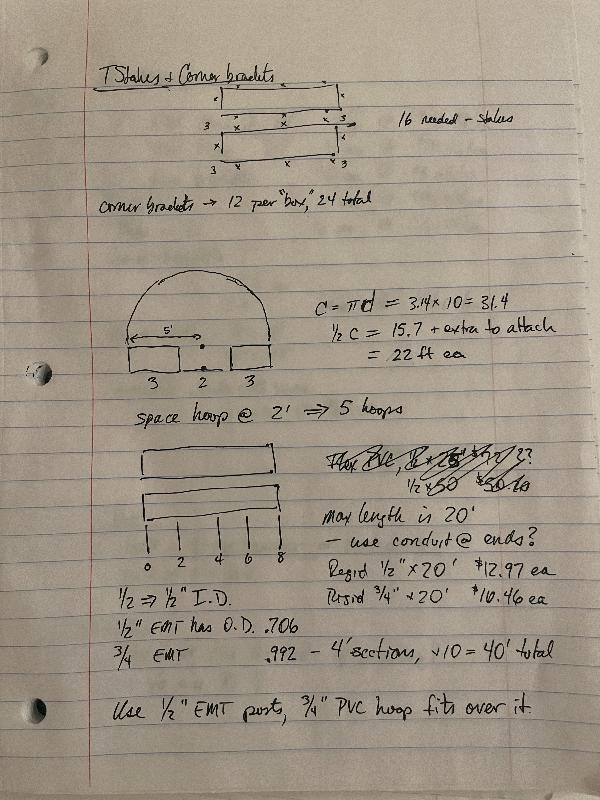 T Stakes + Corner brackets
3 3
16 needed - stakes
3 3
corner brackets → 12 per "box," 24 total
C = πd = 3.14 x 10 = 31.4
½ C = 15.7 + extra to attach
5'
= 22 ft ea
3 2 3
space hoop @ 2' ⇒ 5 hoops
Flex PVC,
½ x 50 $50
max length is 20'
- use conduit @ ends?
0 2 4 6 8
Regid ½" x 20' $12.97 ea
½ ⇒ ½" I.D.
Rigid ¾" x 20' $16.46 ea
½" EMT has O.D. .706
¾ EMT .992 - 4' sections, x10 = 40' total
Use ½" EMT posts, ¾" PVC hoop fits over it